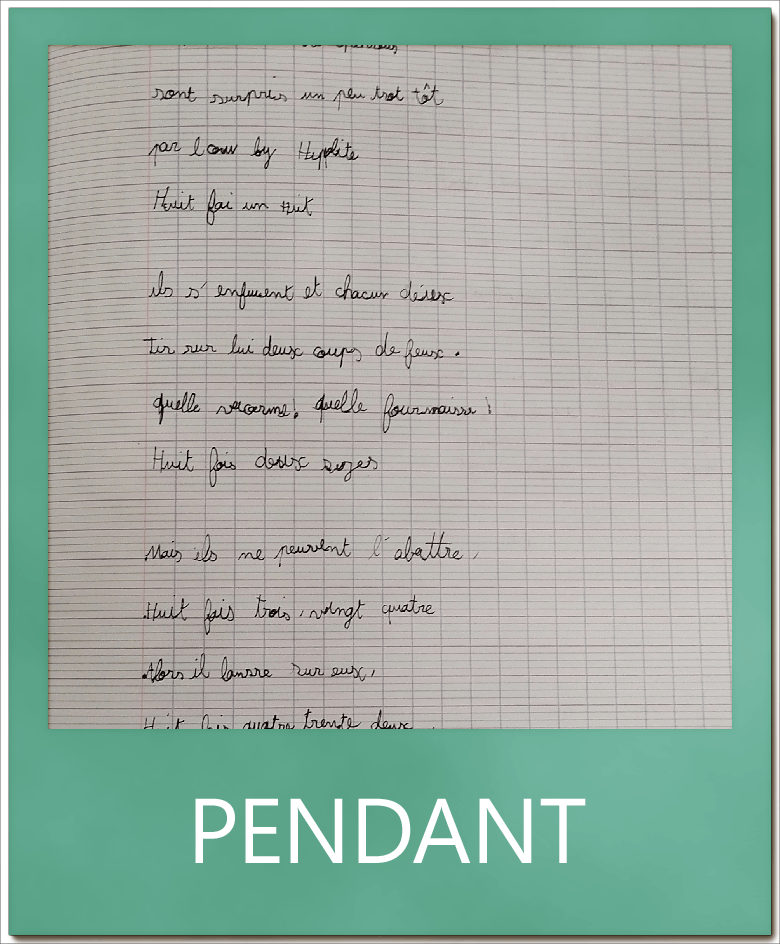 sont surpris un peu trot tôt
par l cow by Hyppolite
Huit fai un Huit
ils s'enfuient et chacun d'eux
tir sur lui deux coups de feux.
quelle vacarme! quelle fournaisse!
Huit fois deux
Mais ils ne peuvent l'abattre,
Huit fois trois, vingt quatre
Alors il lansse sur eux,
Huit fois quatre trente deux
PENDANT